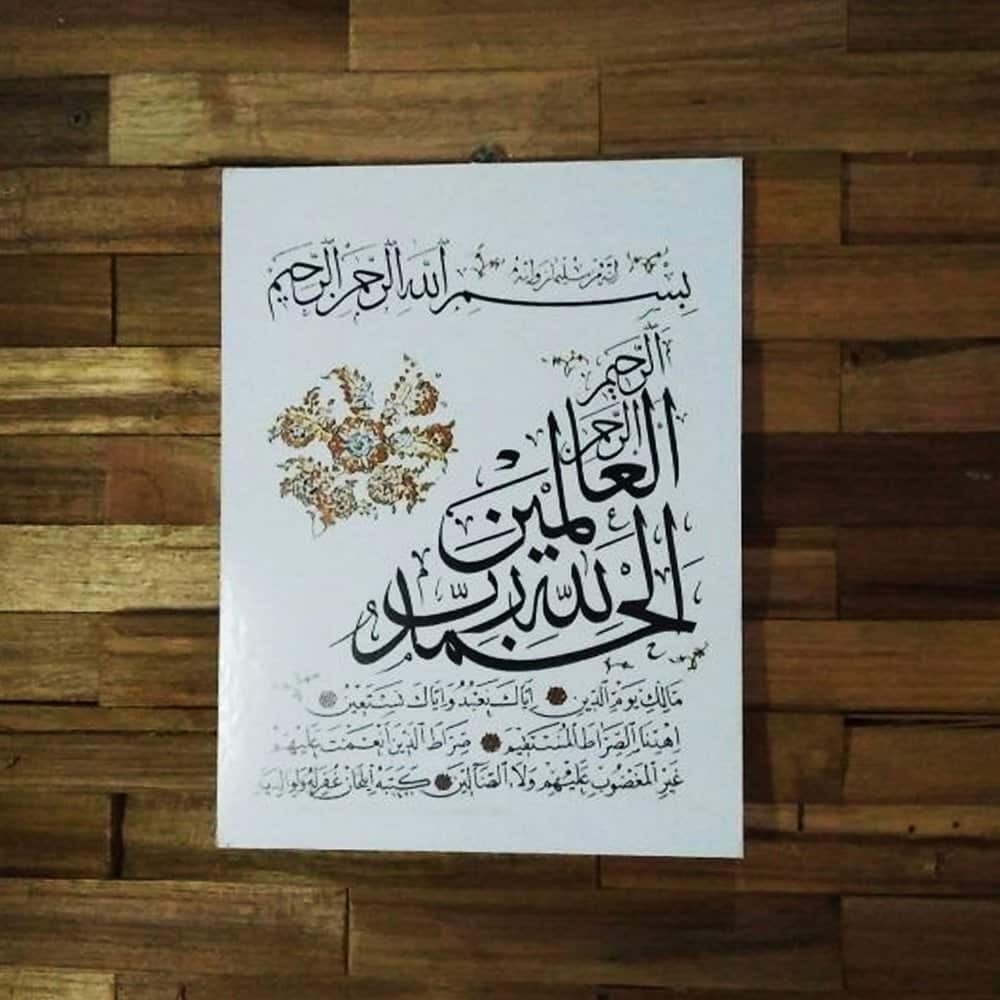 إنه من سليمان وإنه
بسم الله الرحمن الرحيم
الحمد لله رب
العالمين
الرحمن
الرحيم
مالك يوم الدين إياك نعبد وإياك نستعين
اهدنا الصراط المستقيم صراط الذين أنعمت عليهم
غير المغضوب عليهم ولا الضآلين كتبه إيلخان غفر له ولوالديه